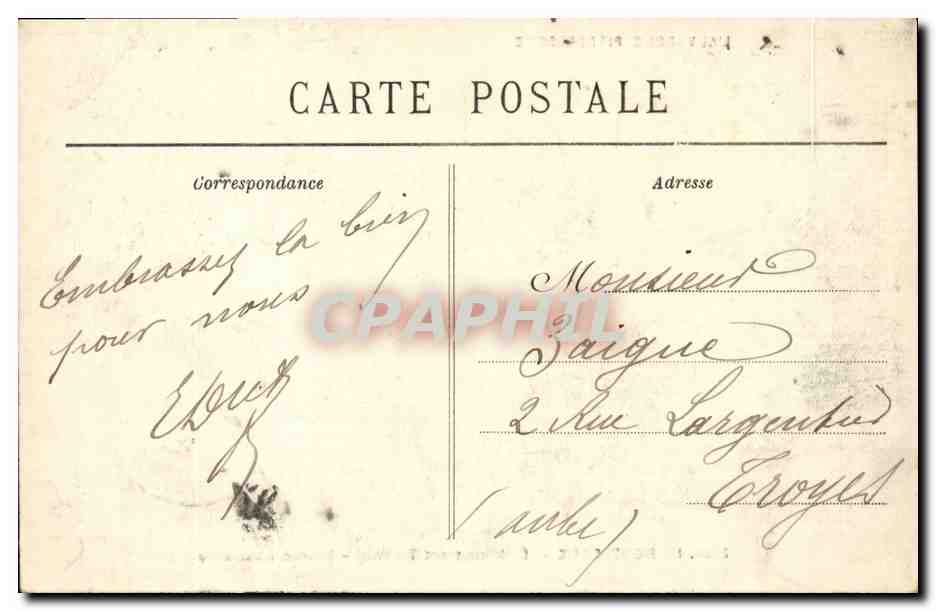 CARTE POSTALE
Correspondance
Embrassez la bien
pour nous
Adresse
Monsieur
Zaigue
2 Rue Largentier
Troyes
(aube)
CPAPHIL